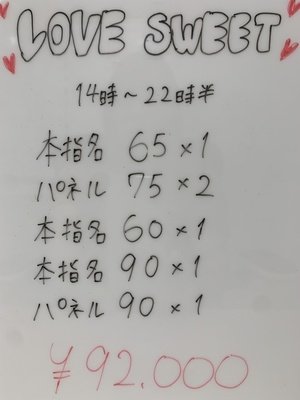 LOVE SWEET
14時～22時半
本指名 65×1
パネル 75×2
本指名 60×1
本指名 90×1
パネル 90×1
¥92.000